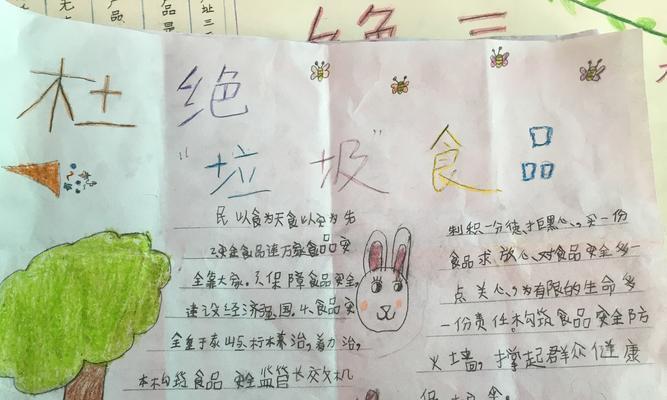 杜绝
"垃圾"食品
民以食为天食以安为先
2安全食品连万家食品安
全靠大家。3保障食品安全,
建设经济强国。4、食品安
全重于泰山标本兼治,着力治,
本构筑食品安全监管长效机
制织一分徒拒黑心、,买一份
食品求放心、对食品安全多一
点关心、,为有限的生命多
一份责任构筑食品安全防
火墙,撑起群众健康
保
全
无
产
品
址
三
产
品
品是
绝三